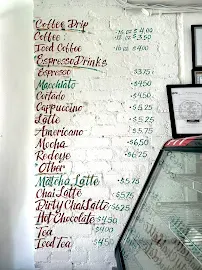 Coffee Drip
Coffee : 12 oz $3.50
16 oz $4.00
Iced Coffee 16 oz $4.00
Espresso Drinks
Espresso $3.75
Macchiato $4.50
Cortado $4.50
Cappuccino $5.25
Latte $5.25
Americano $3.75
Mocha $6.50
Redeye $5.25
Other
Matcha Latte $5.75
Chai Latte $5.25
Dirty Chai Latte $6.25
Hot Chocolate $4.50
Tea $4.00
Iced Tea $4.50